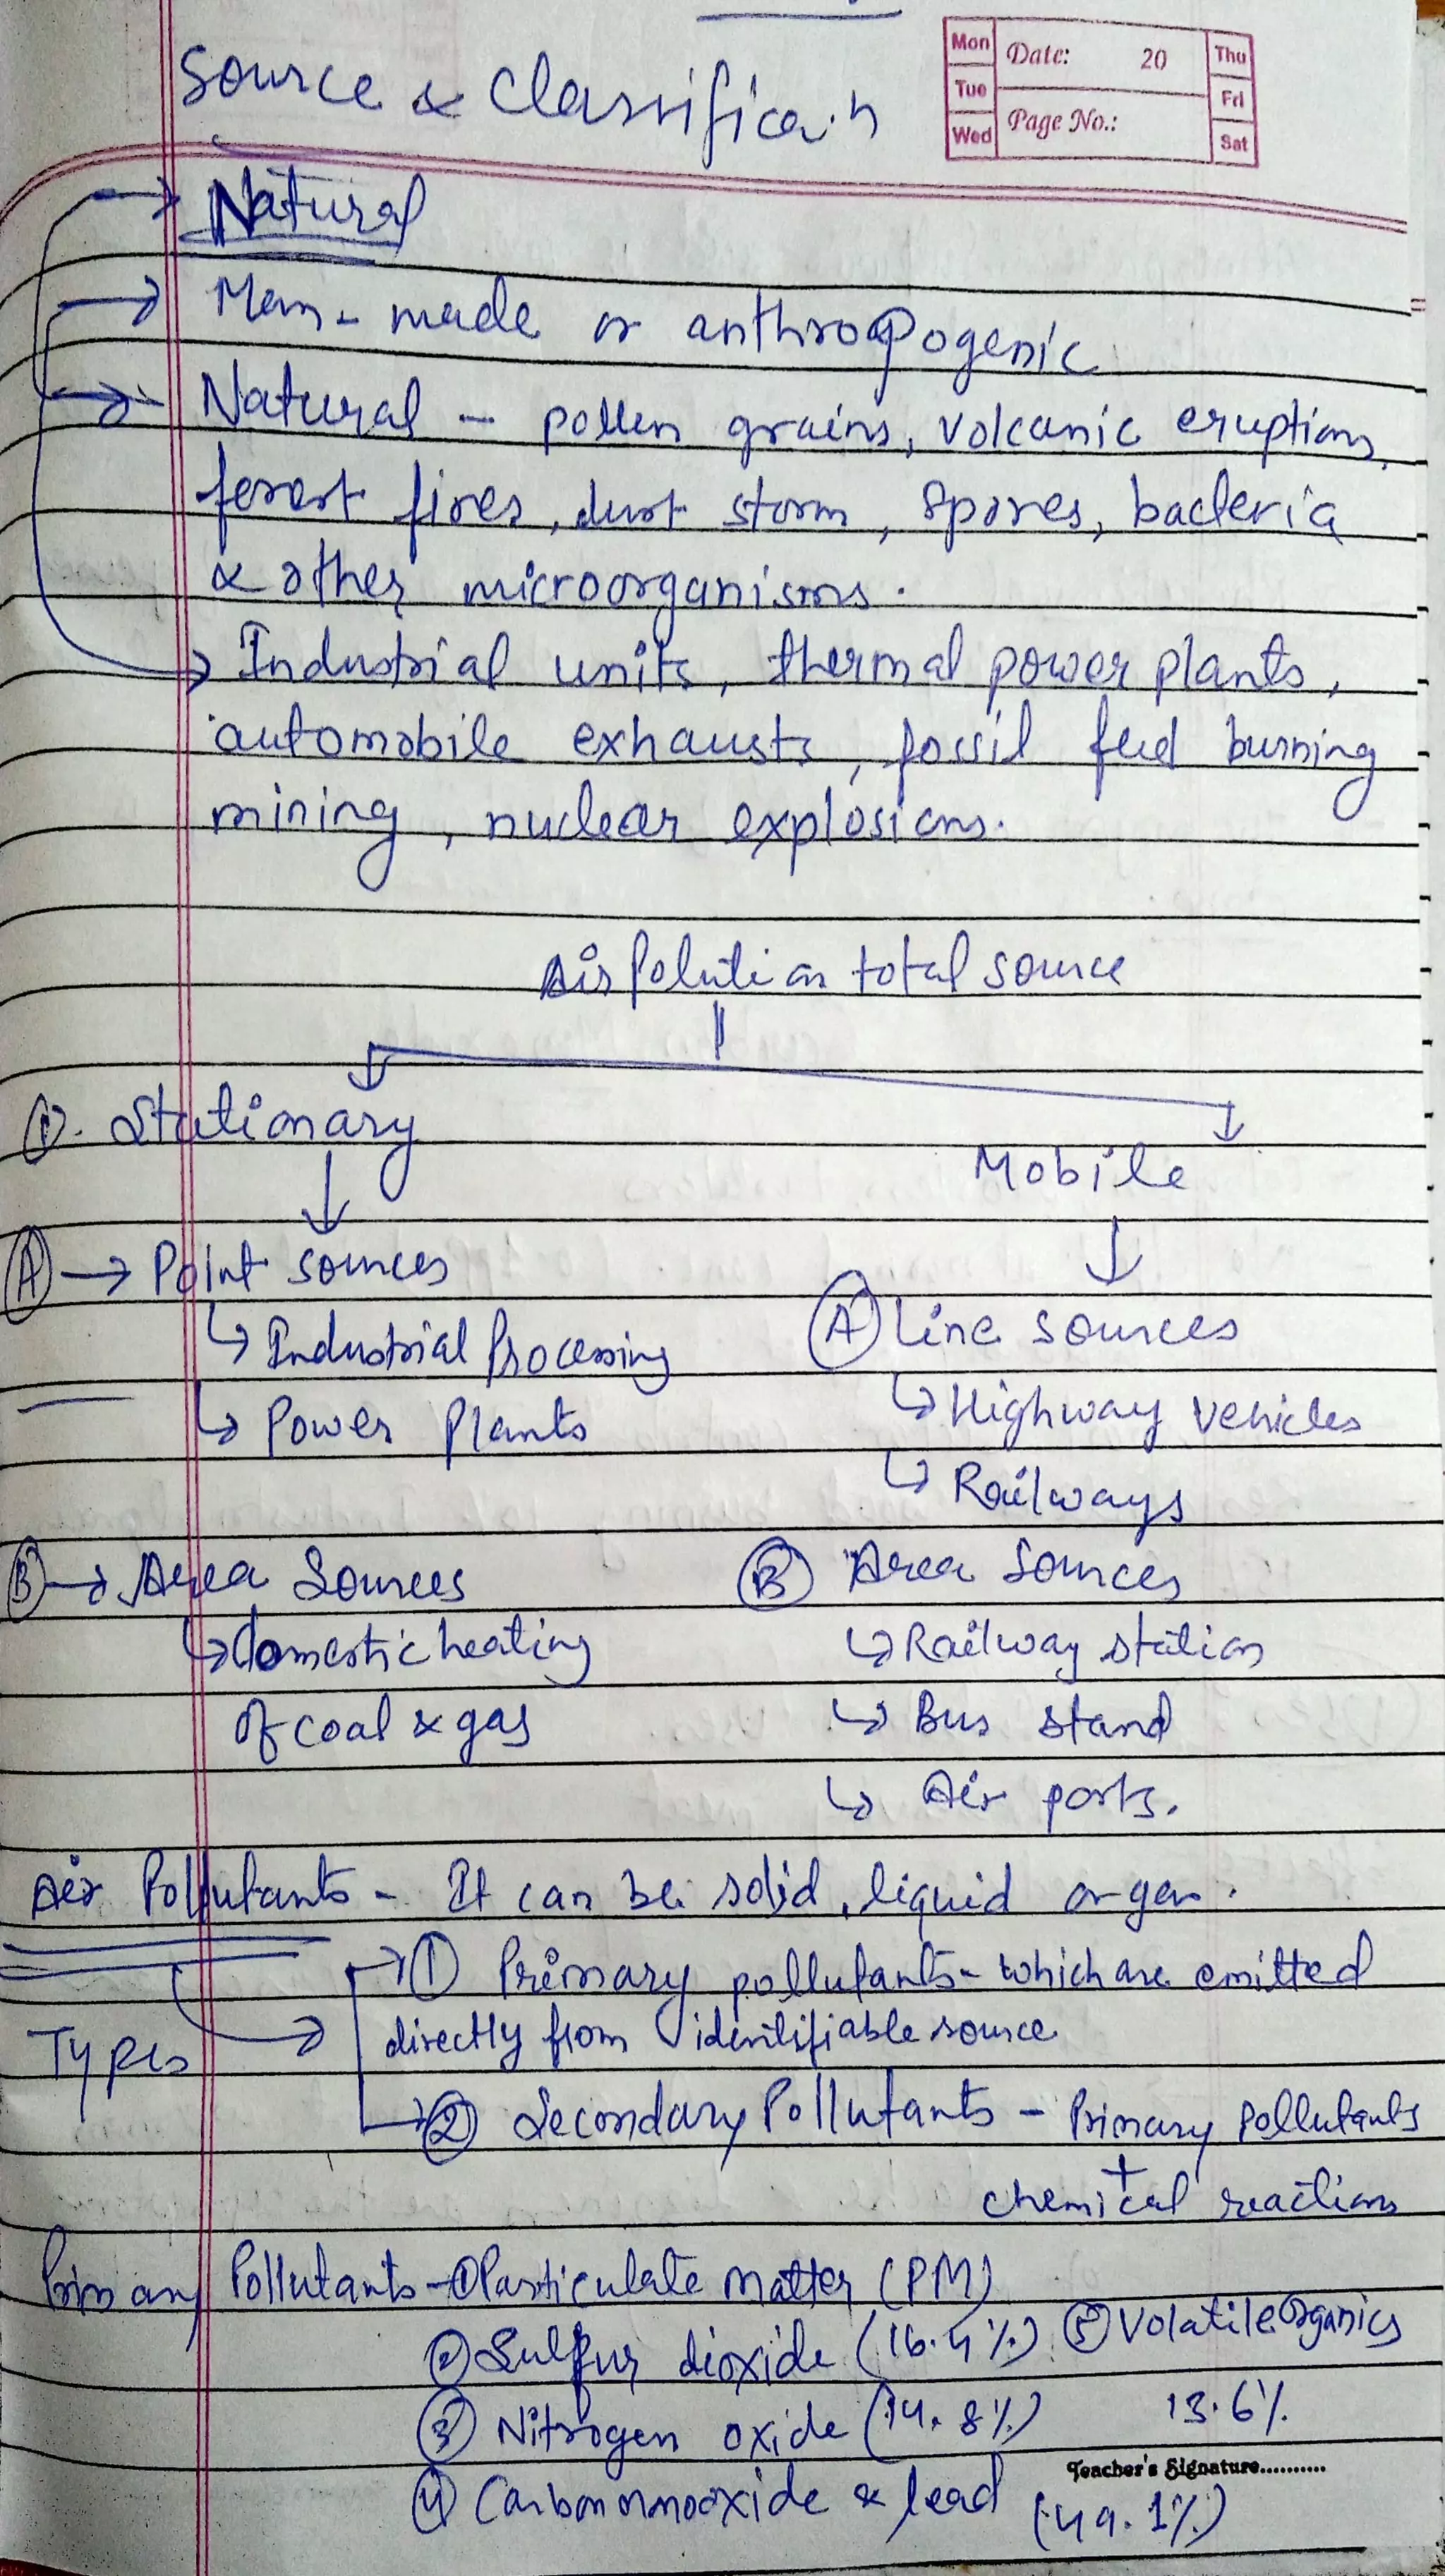 Mon Date: 20 Thu
Tue Fri
Wed Page No.: Sat
Source & Classificain
Natural
Man-made or anthropogenic
Natural - pollen grains, volcanic eruptions,
forest fires, dust storm, spores, bacteria
& other microorganisms.
Industrial units, thermal power plants,
automobile exhausts, fossil fuel burning
mining, nuclear explosions.
Air Polution total source
①. Stationary
Mobile
Ⓐ → Point sources
↳ Industrial Processing
↳ Power Plants
Ⓐ Line sources
↳ Highway vehicles
↳ Railways
Ⓑ → Area Sources
↳ domestic heating
of coal & gas
Ⓑ Area Sources
↳ Railway station
↳ Bus stand
↳ Air ports.
Air Pollutants - It can be solid, liquid or gas.
Types → ① Primary pollutants - which are emitted
directly from identifiable source
② Secondary Pollutants - Primary pollutants
+
chemical reactions
Primary Pollutants - ① Particulate matter (PM)
② Sulfur dioxide (16.4%) ⑤ Volatile organics
③ Nitrogen oxide (14.8%) 13.6%
Teacher's Signature..........
④ Carbonmonooxide & lead (49.1%)